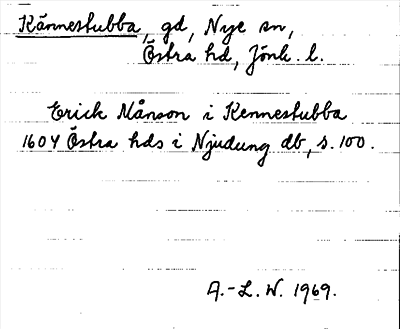 Kännestubba, gd, Nye sn,
Östra hd, Jönk. l.
Erick Månson i Kennestubba
1604 Östra hds i Njudung db, s. 100.
A.-L. W. 1969.